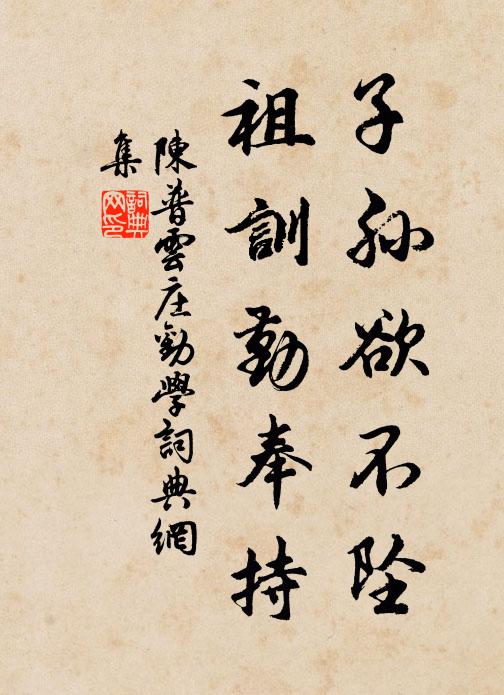 子孙欲不坠
祖訓勤奉持
陳普雲庄勸學詞典網
集
詞典
网印